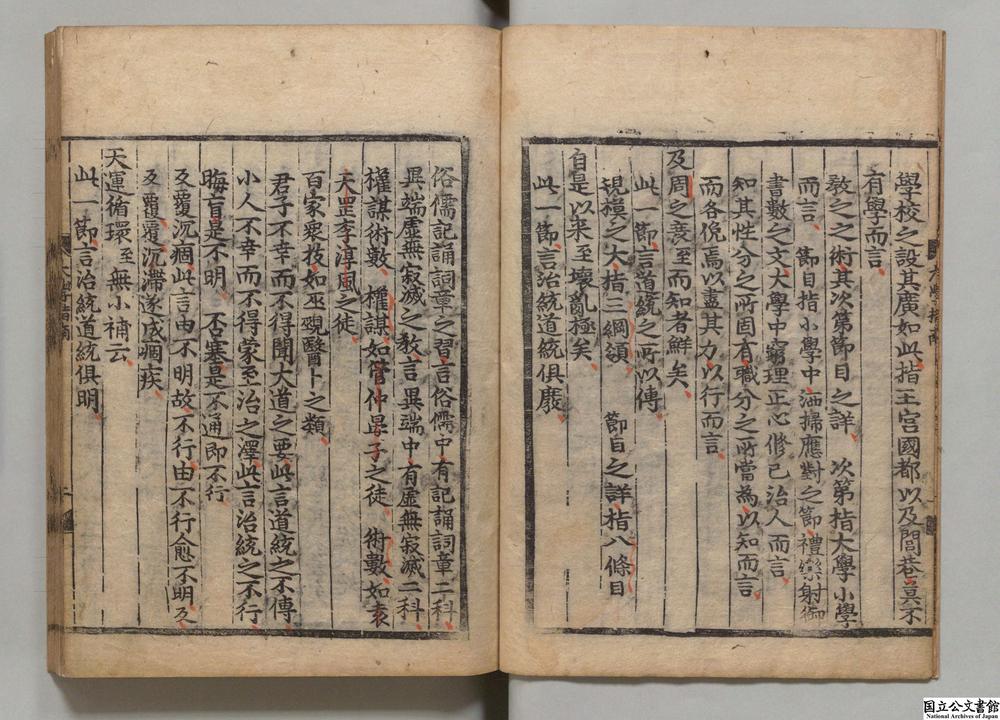 學校之設其廣如此指王宮國都以及閭巷莫不
有學而言
教之之術其次第節目之詳 次第指大學小學
而言 節目指小學中洒掃應對之節禮樂射御
書數之文大學中窮理正心修己治人而言
知其性分之所固有職分之所當為以知而言
而各俛焉以盡其力以行而言
及周之衰至而知者鮮矣
此一節言道統之所以傳
規模之大指三綱領 節目之詳指八條目
自是以来至壞亂極矣
此一節言治統道統俱廢
俗儒記誦詞章之習言俗儒中有記誦詞章二科
異端虛無寂滅之教言異端中有虛無寂滅二科
權謀術數 權謀如管仲晏子之徒 術數如袁
天罡李淳風之徒
百家衆技如巫覡醫卜之類
君子不幸而不得聞大道之要此言道統之不傳
小人不幸而不得蒙至治之澤此言治統之不行
晦盲是不明 否塞是不通即不行
反覆沉痼此言由不明故不行由不行愈不明反
反覆覆沉滯遂成痼疾
天運循環至無小補云
此一節言治統道統俱明
大學指南
国立公文書館
National Archives of Japan